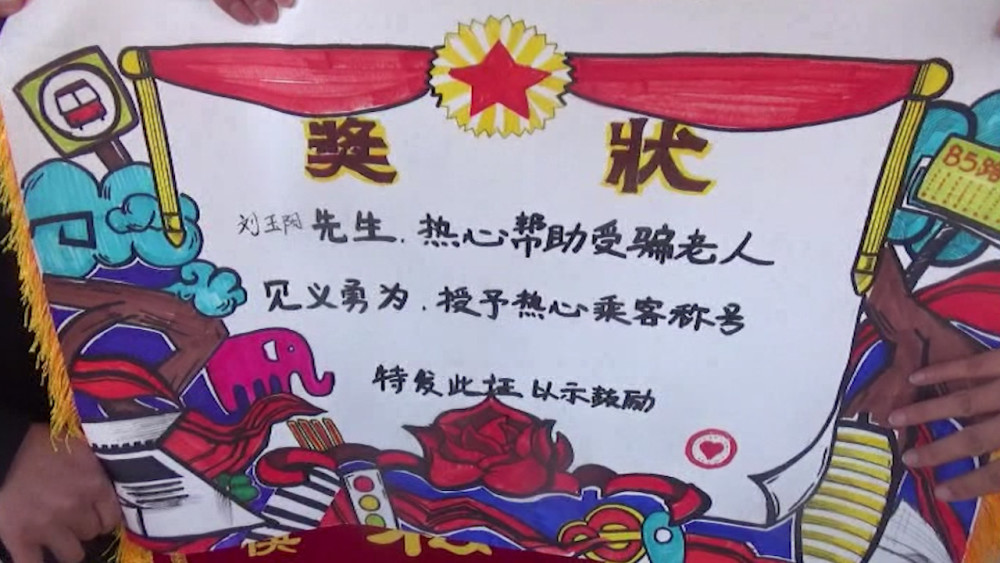 奖状
B5路
刘玉阳先生.热心帮助受骗老人
见义勇为.授予热心乘客称号
特发此证以示鼓励